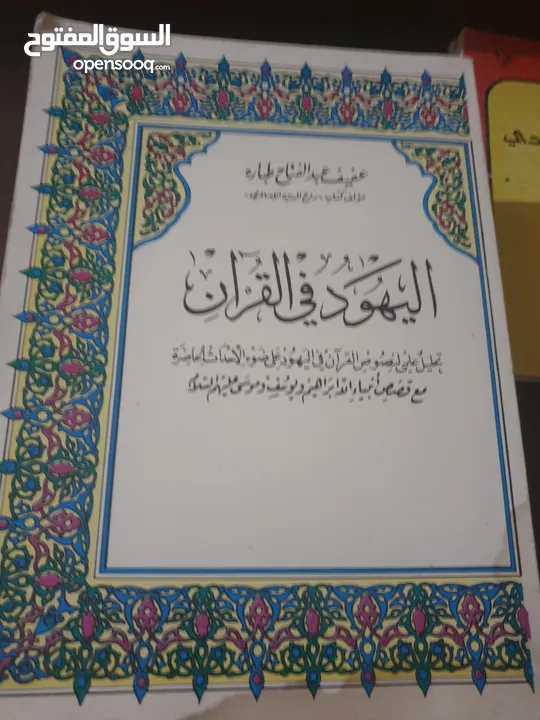 السوق المفتوح
opensooq.com
عفيف عبد الفتاح طباره
مؤلف كتاب: روح الدين الإسلامي
اليهود في القرآن
تحليل علمي لنصوص القرآن في اليهود على ضوء الأحداث الحاضرة
مع قصص أنبياء الله ابراهيم ويوسف وموسى عليهم السلام